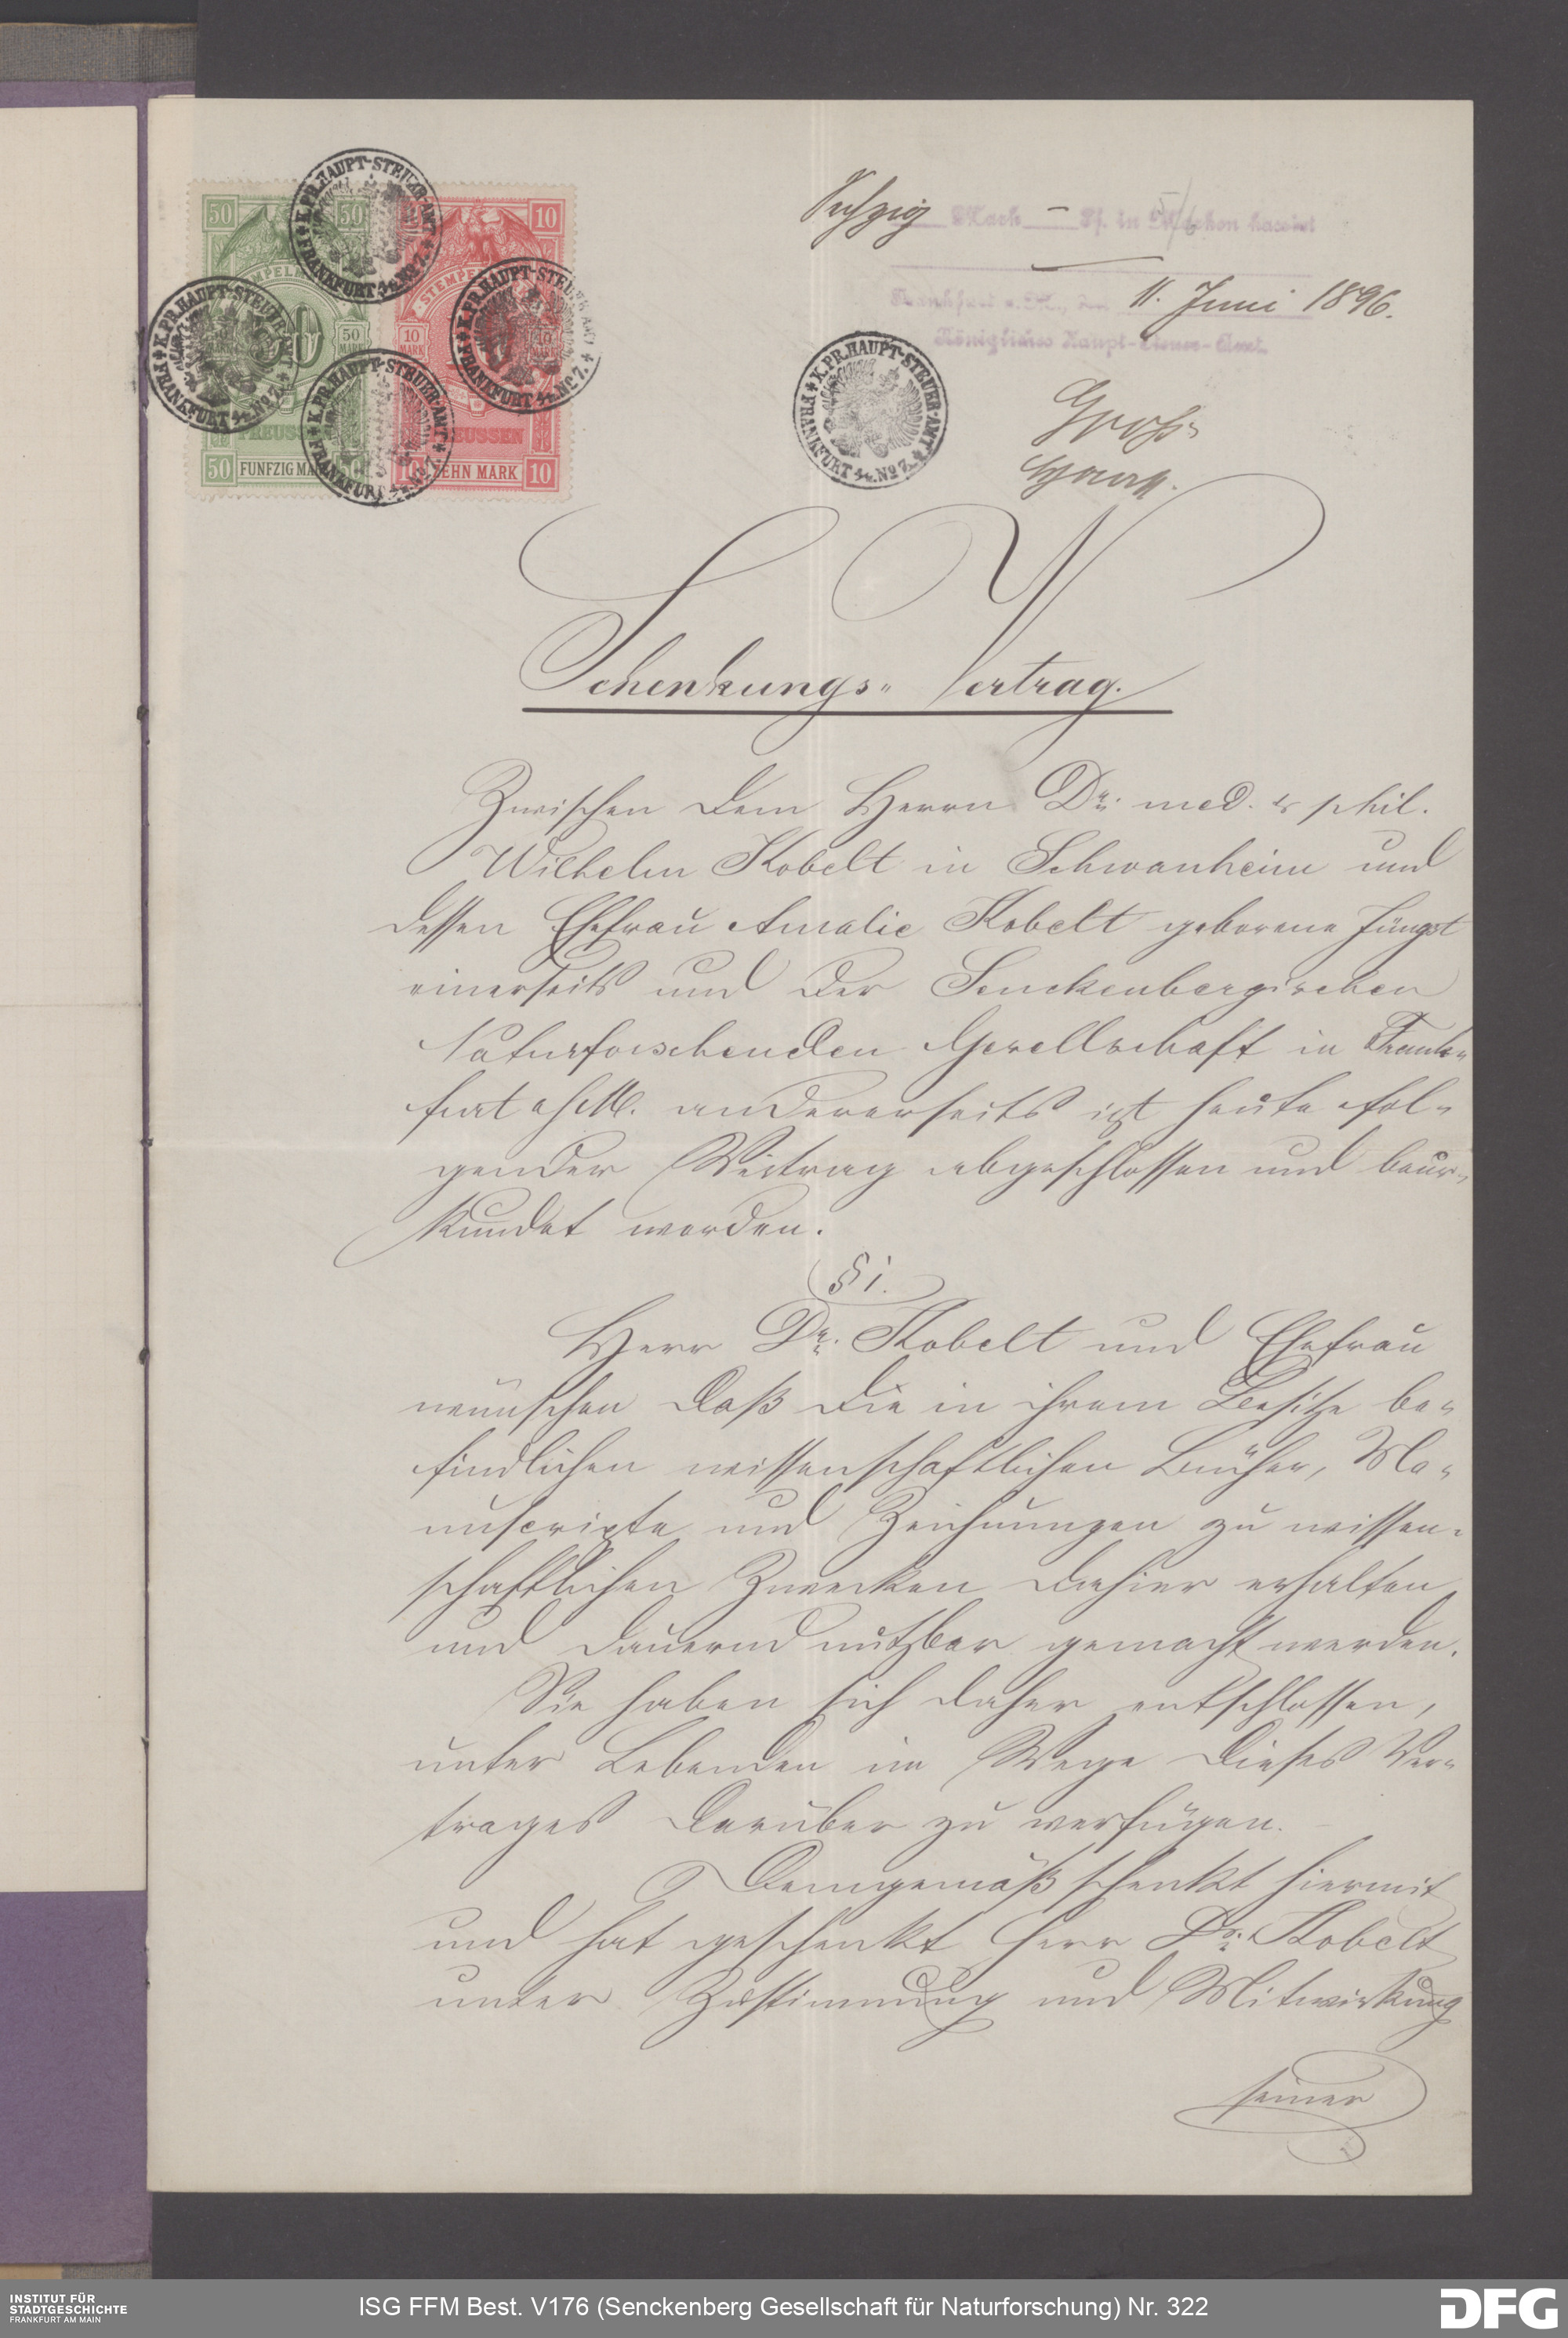 Sechzig Mark — Pf. in Marken kassirt
Frankfurt a. M., den 11. Juni 1896.
Königliches Haupt-Steuer-Amt
K. PR. HAUPT-STEUER-AMT FRANKFURT a/M. No 7.
50 50
50 MARK
PREUSSEN
50 FUNFZIG MARK 50
10
STEMPEL
10 MARK
PREUSSEN
10 ZEHN MARK 10
Schenkungs-Vertrag.
Zwischen dem Herrn Dr. med. & phil.
Wilhelm Kobelt in Schwanheim und
dessen Ehefrau Amalie Kobelt geborene Jüngst
einerseits und der Senckenbergischen
Naturforschenden Gesellschaft in Frank-
furt a/M. andererseits ist heute fol-
gender Vertrag abgeschlossen und beur-
kundet worden.
§ 1.
Herr Dr. Kobelt und Ehefrau
wünschen daß die in ihrem Besitze be-
findlichen wissenschaftlichen Bücher, Ma-
nuscripte und Zeichnungen zu wissen-
schaftlichen Zwecken dahier erhalten
und dauernd nutzbar gemacht werden.
Sie haben sich daher entschlossen,
unter Lebenden im Wege dieses Ver-
trages darüber zu verfügen.
Demgemäß schenkt hiermit
und hat geschenkt Herr Dr. Kobelt
unter Zustimmung und Mitwirkung
seiner
INSTITUT FÜR
STADTGESCHICHTE
FRANKFURT AM MAIN
ISG FFM Best. V176 (Senckenberg Gesellschaft für Naturforschung) Nr. 322
DFG